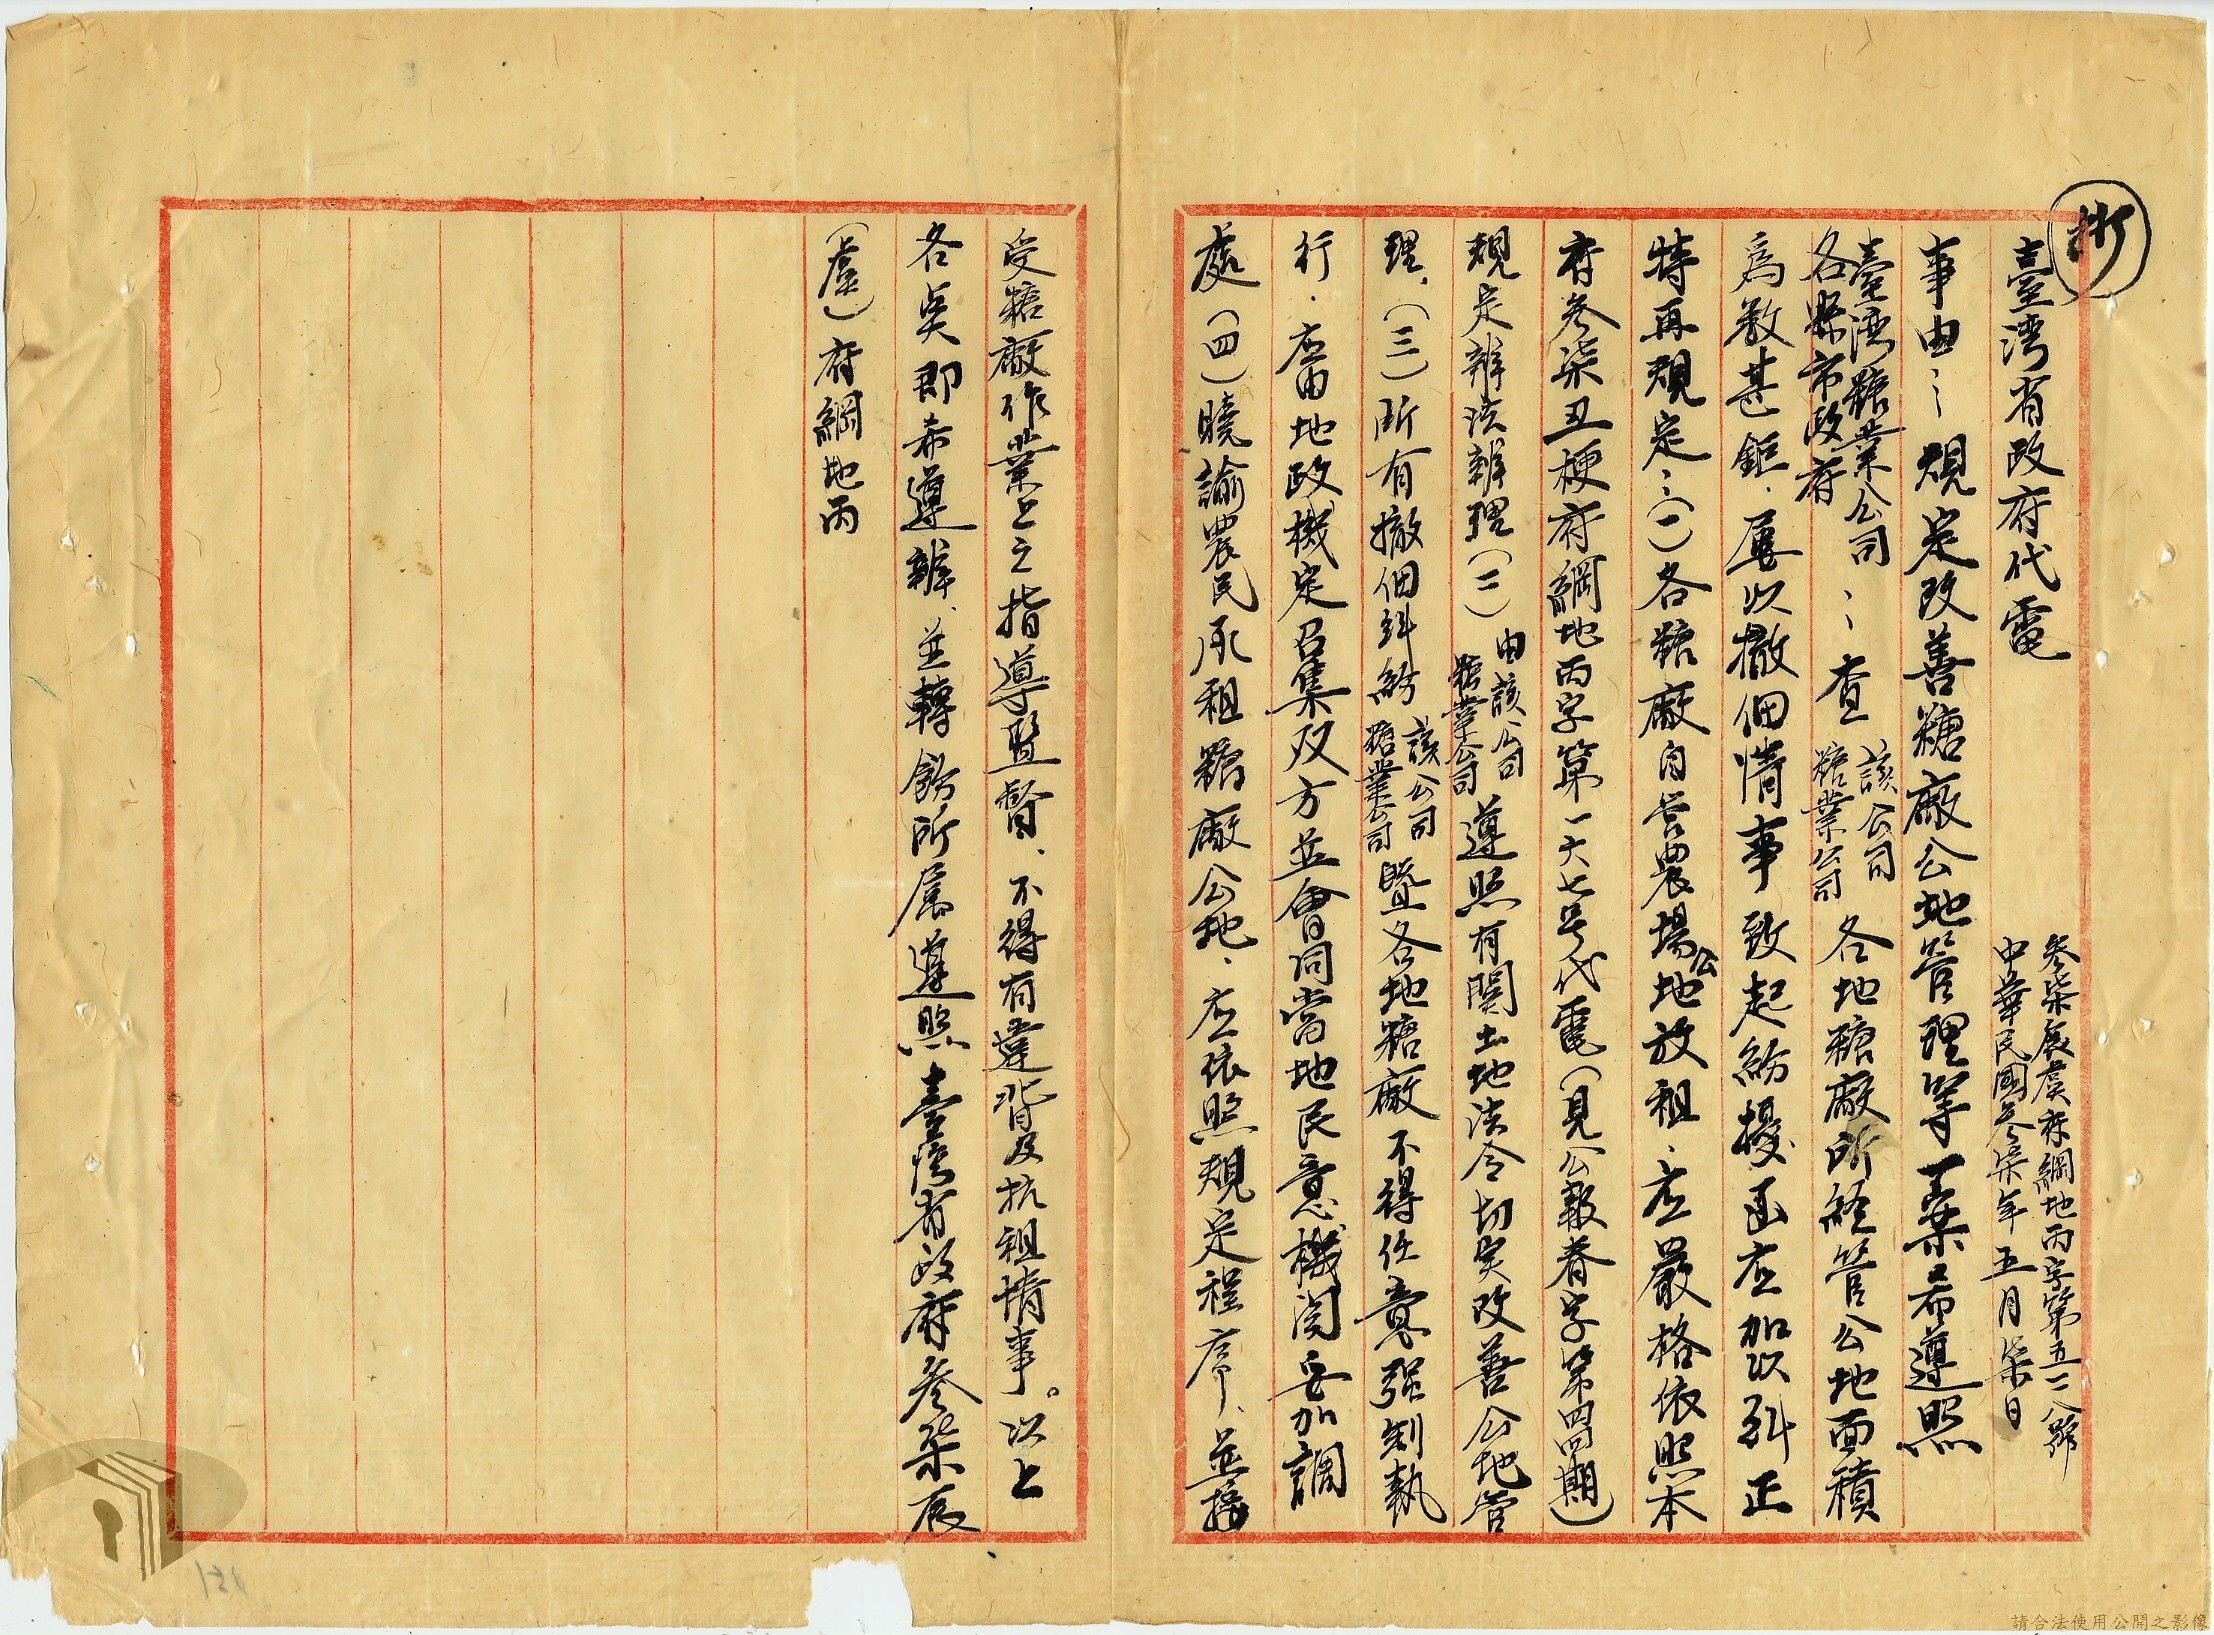 抄
臺湾省政府代電
参柒辰虞府綱地丙字第五一二八號
中華民國参柒年五月柒日
事由：規定改善糖廠公地管理等一案希遵照
臺湾糖業公司
各縣市政府
：查
該公司
糖業公司
各地糖廠所経管公地面積
爲数甚鉅、屢以撤佃情事致起紛擾亟应加以糾正
特再規定：（一）各糖廠自営農場公地放租、应嚴格依照本
府参柒丑梗府綱地丙字第一六七号代電（見公報春字第四四期）
規定辦法辦理（二）
由該公司
糖業公司
遵照有関土地法令切实改善公地管
理、（三）所有撤佃糾紛
該公司
糖業公司
暨各地糖廠不得任意强制執
行、应由地政機定召集双方並會同當地民意機関妥加調
處（四）曉諭農民承租糖廠公地、应依照規定程序、並接
受糖廠作業上之指導監督、不得有違背及抗租情事。以上
各点即希遵辦、並轉飭所屬遵照臺湾省政府参柒辰
（虞）府綱地丙
請合法使用公開之影像